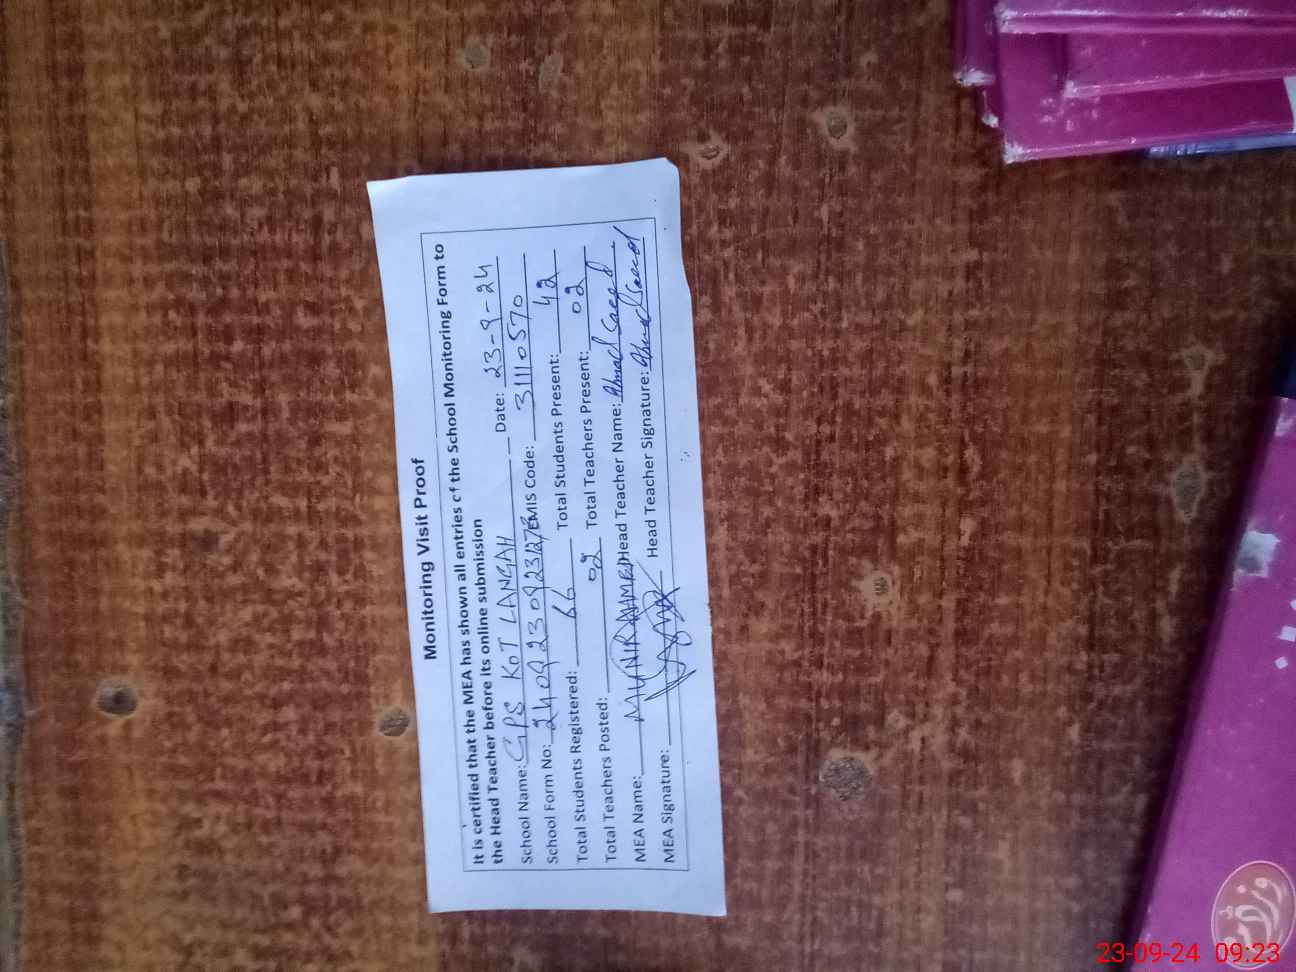 Monitoring Visit Proof
It is certified that the MEA has shown all entries of the School Monitoring Form to
the Head Teacher before its online submission
School Name: GPS KOT LANGAH Date: 23-9-24
School Form No: EMIS Code: 31110570
Total Students Registered: 66 Total Students Present: 42
Total Teachers Posted: 02 Total Teachers Present: 02
MEA Name: MUNIR AHMED Head Teacher Name: Ahmad Saeed
MEA Signature: Head Teacher Signature: Ahmad Saeed
23-09-24 09:23